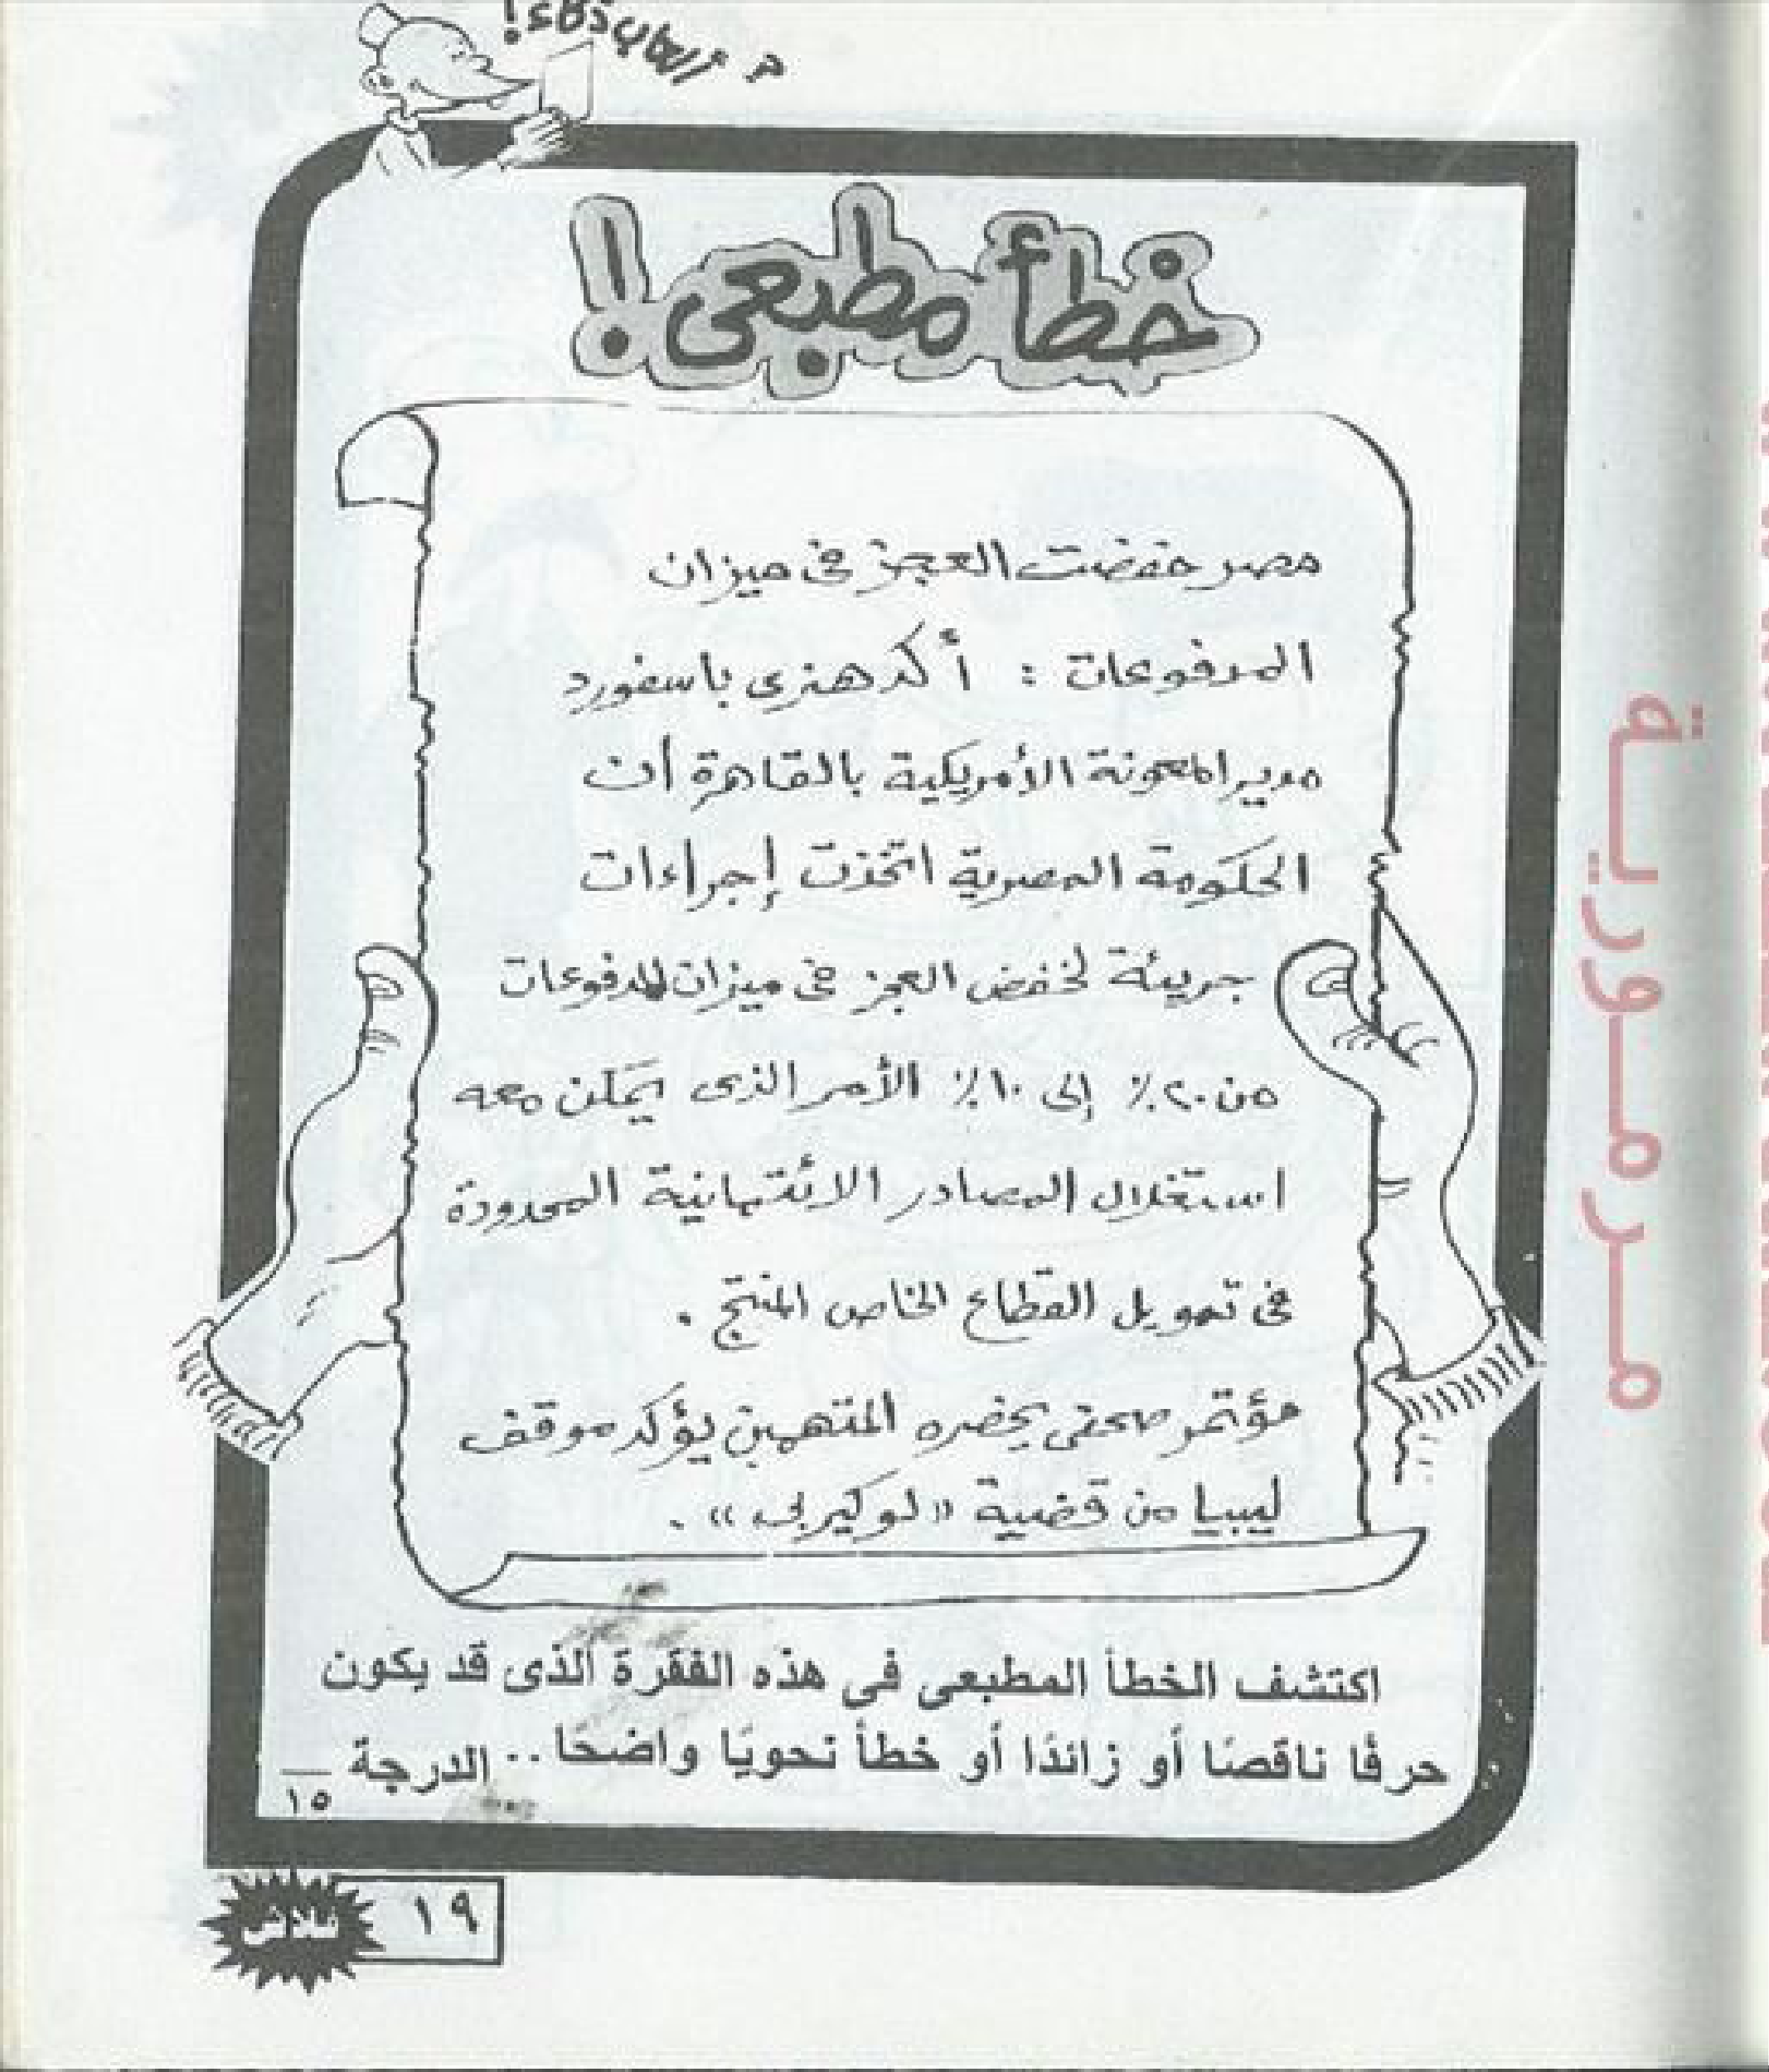 خطأ مطبعى !
مصر خفضت العجز فى ميزان
المدفوعات : أكد هنرى باسفورد
مدير المعونة الأمريكية بالقاهرة أن
الحكومة المصرية اتخذت إجراءات
جريئة لخفض العجز فى ميزان المدفوعات
من ٢٠٪ إلى ١٠٪ الأمر الذى يمكن معه
استغلال المصادر الائتمانية المحدودة
فى تمويل القطاع الخاص المنتج .
مؤتمر صحفى يحضره المتهمين يؤكد موقف
ليبيا من قضية «لوكيربى» .
اكتشف الخطأ المطبعى فى هذه الفقرة الذى قد يكون
حرفًا ناقصًا أو زائدًا أو خطأ نحويًا واضحًا .. الدرجة ١٥
١٩
فلاش
مرمورية